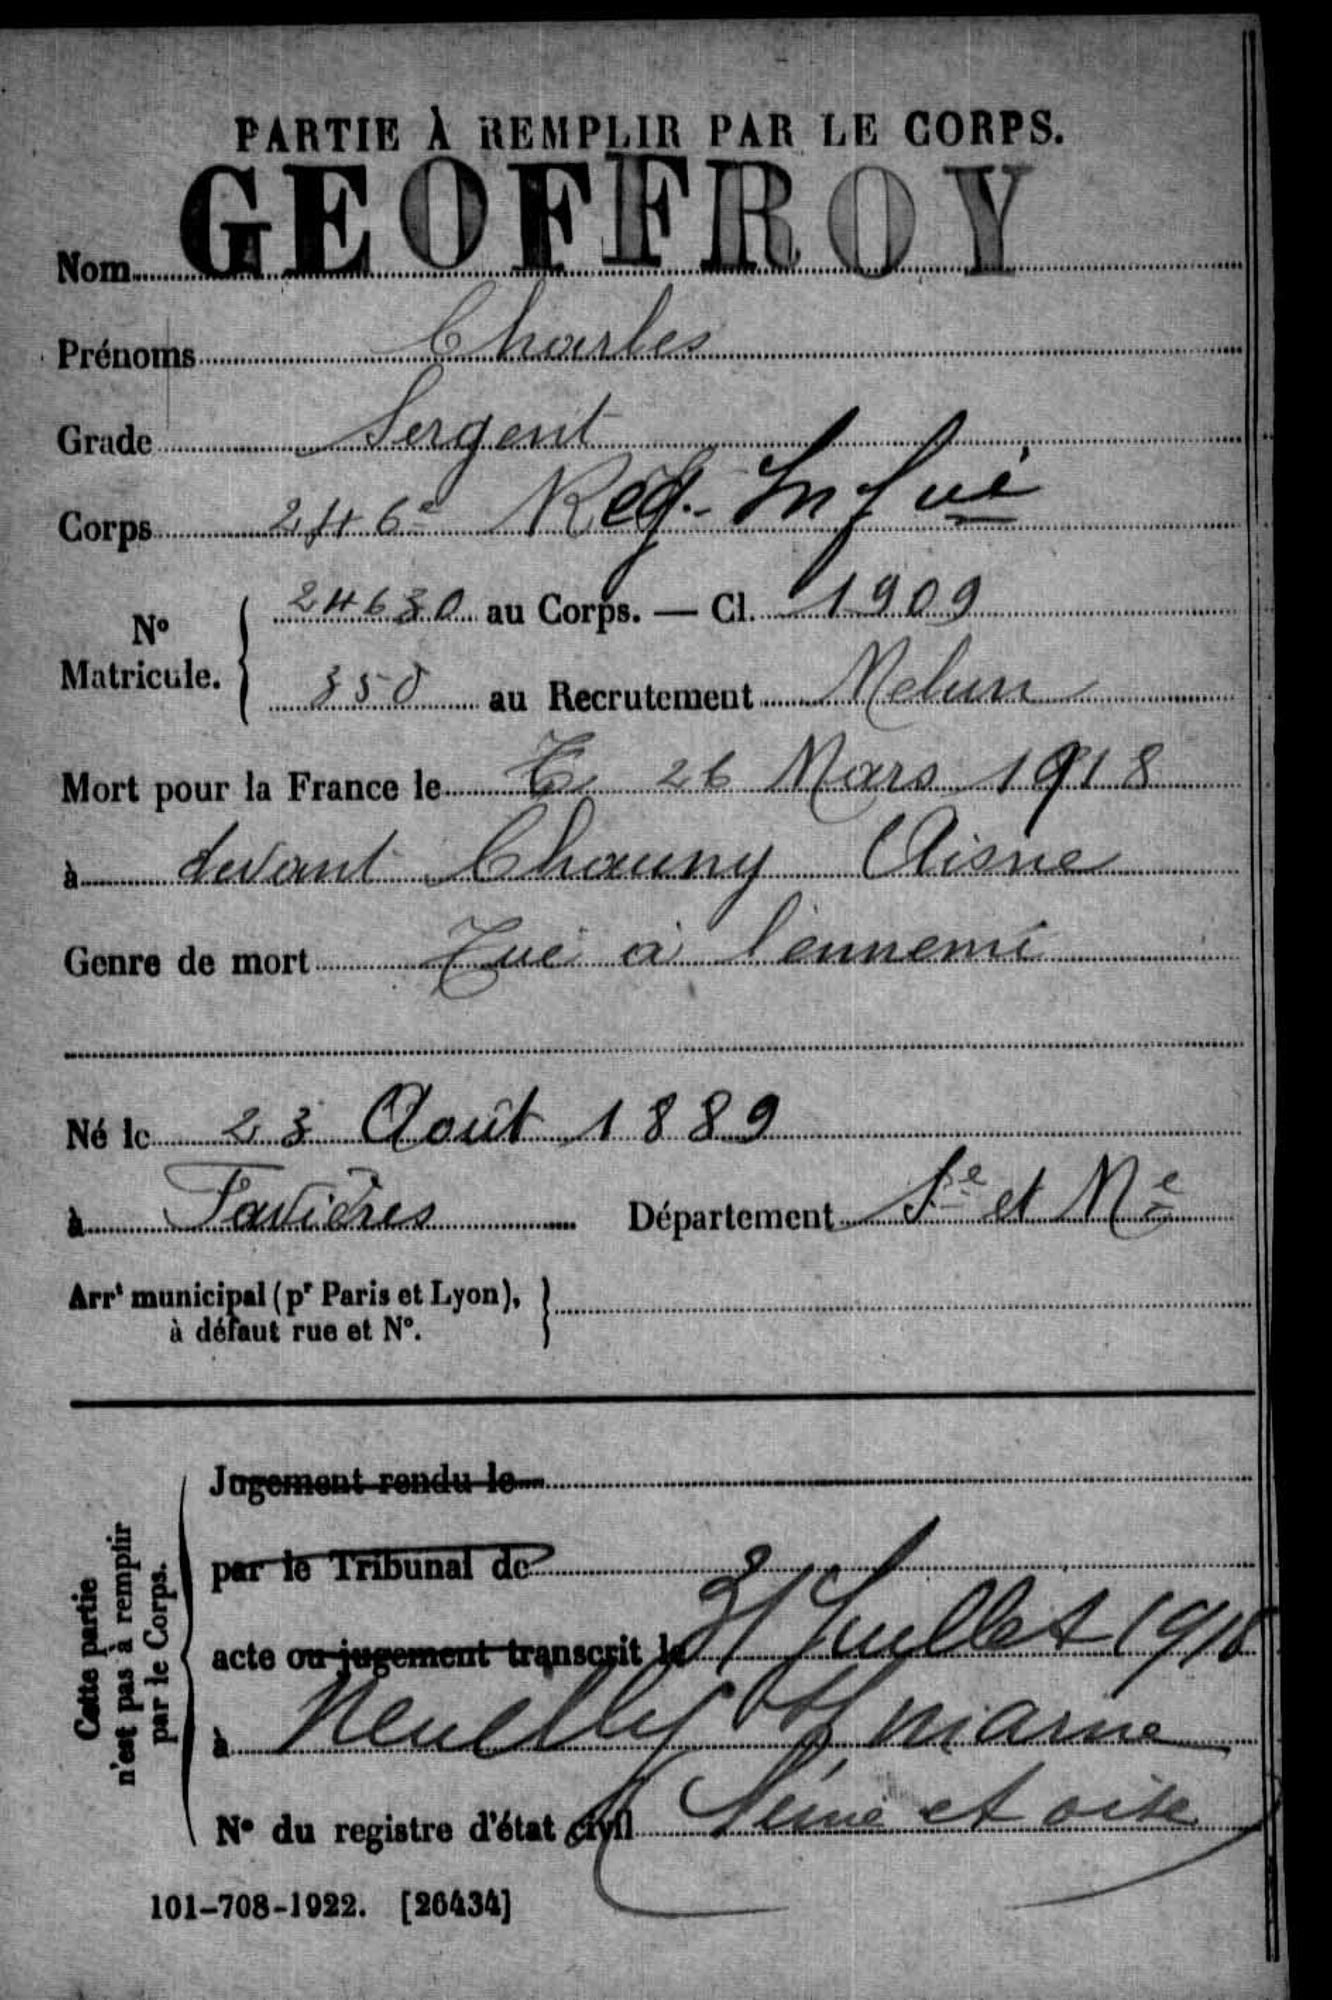 PARTIE À REMPLIR PAR LE CORPS.
Nom GEOFFROY
Prénoms Charles
Grade Sergent
Corps 246e Rég. Infie
No Matricule. 24630 au Corps. — Cl. 1909
350 au Recrutement Melun
Mort pour la France le 26 Mars 1918
à devant Chauny Aisne
Genre de mort Tué à l'ennemi
Né le 23 Août 1889
à Favières Département Se et Me
Arrt municipal (pr Paris et Lyon),
à défaut rue et No.
Cette partie
n'est pas à remplir
par le Corps.
Jugement rendu le
par le Tribunal de
acte ou jugement transcrit le 31 Juillet 1918
à Neuilly s/ marne
(Seine et oise)
No du registre d'état civil
101-708-1922. [26434]